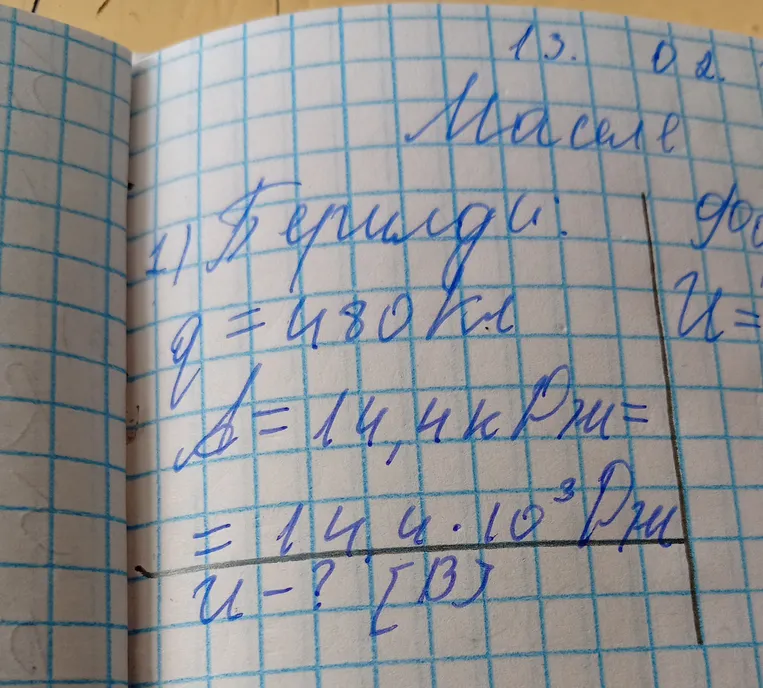 13. 02.
Маселе
1) Берилди:
q = 480 Кл
A = 14,4 кДж =
= 14,4 · 10³ Дж
U - ? [В]
U =